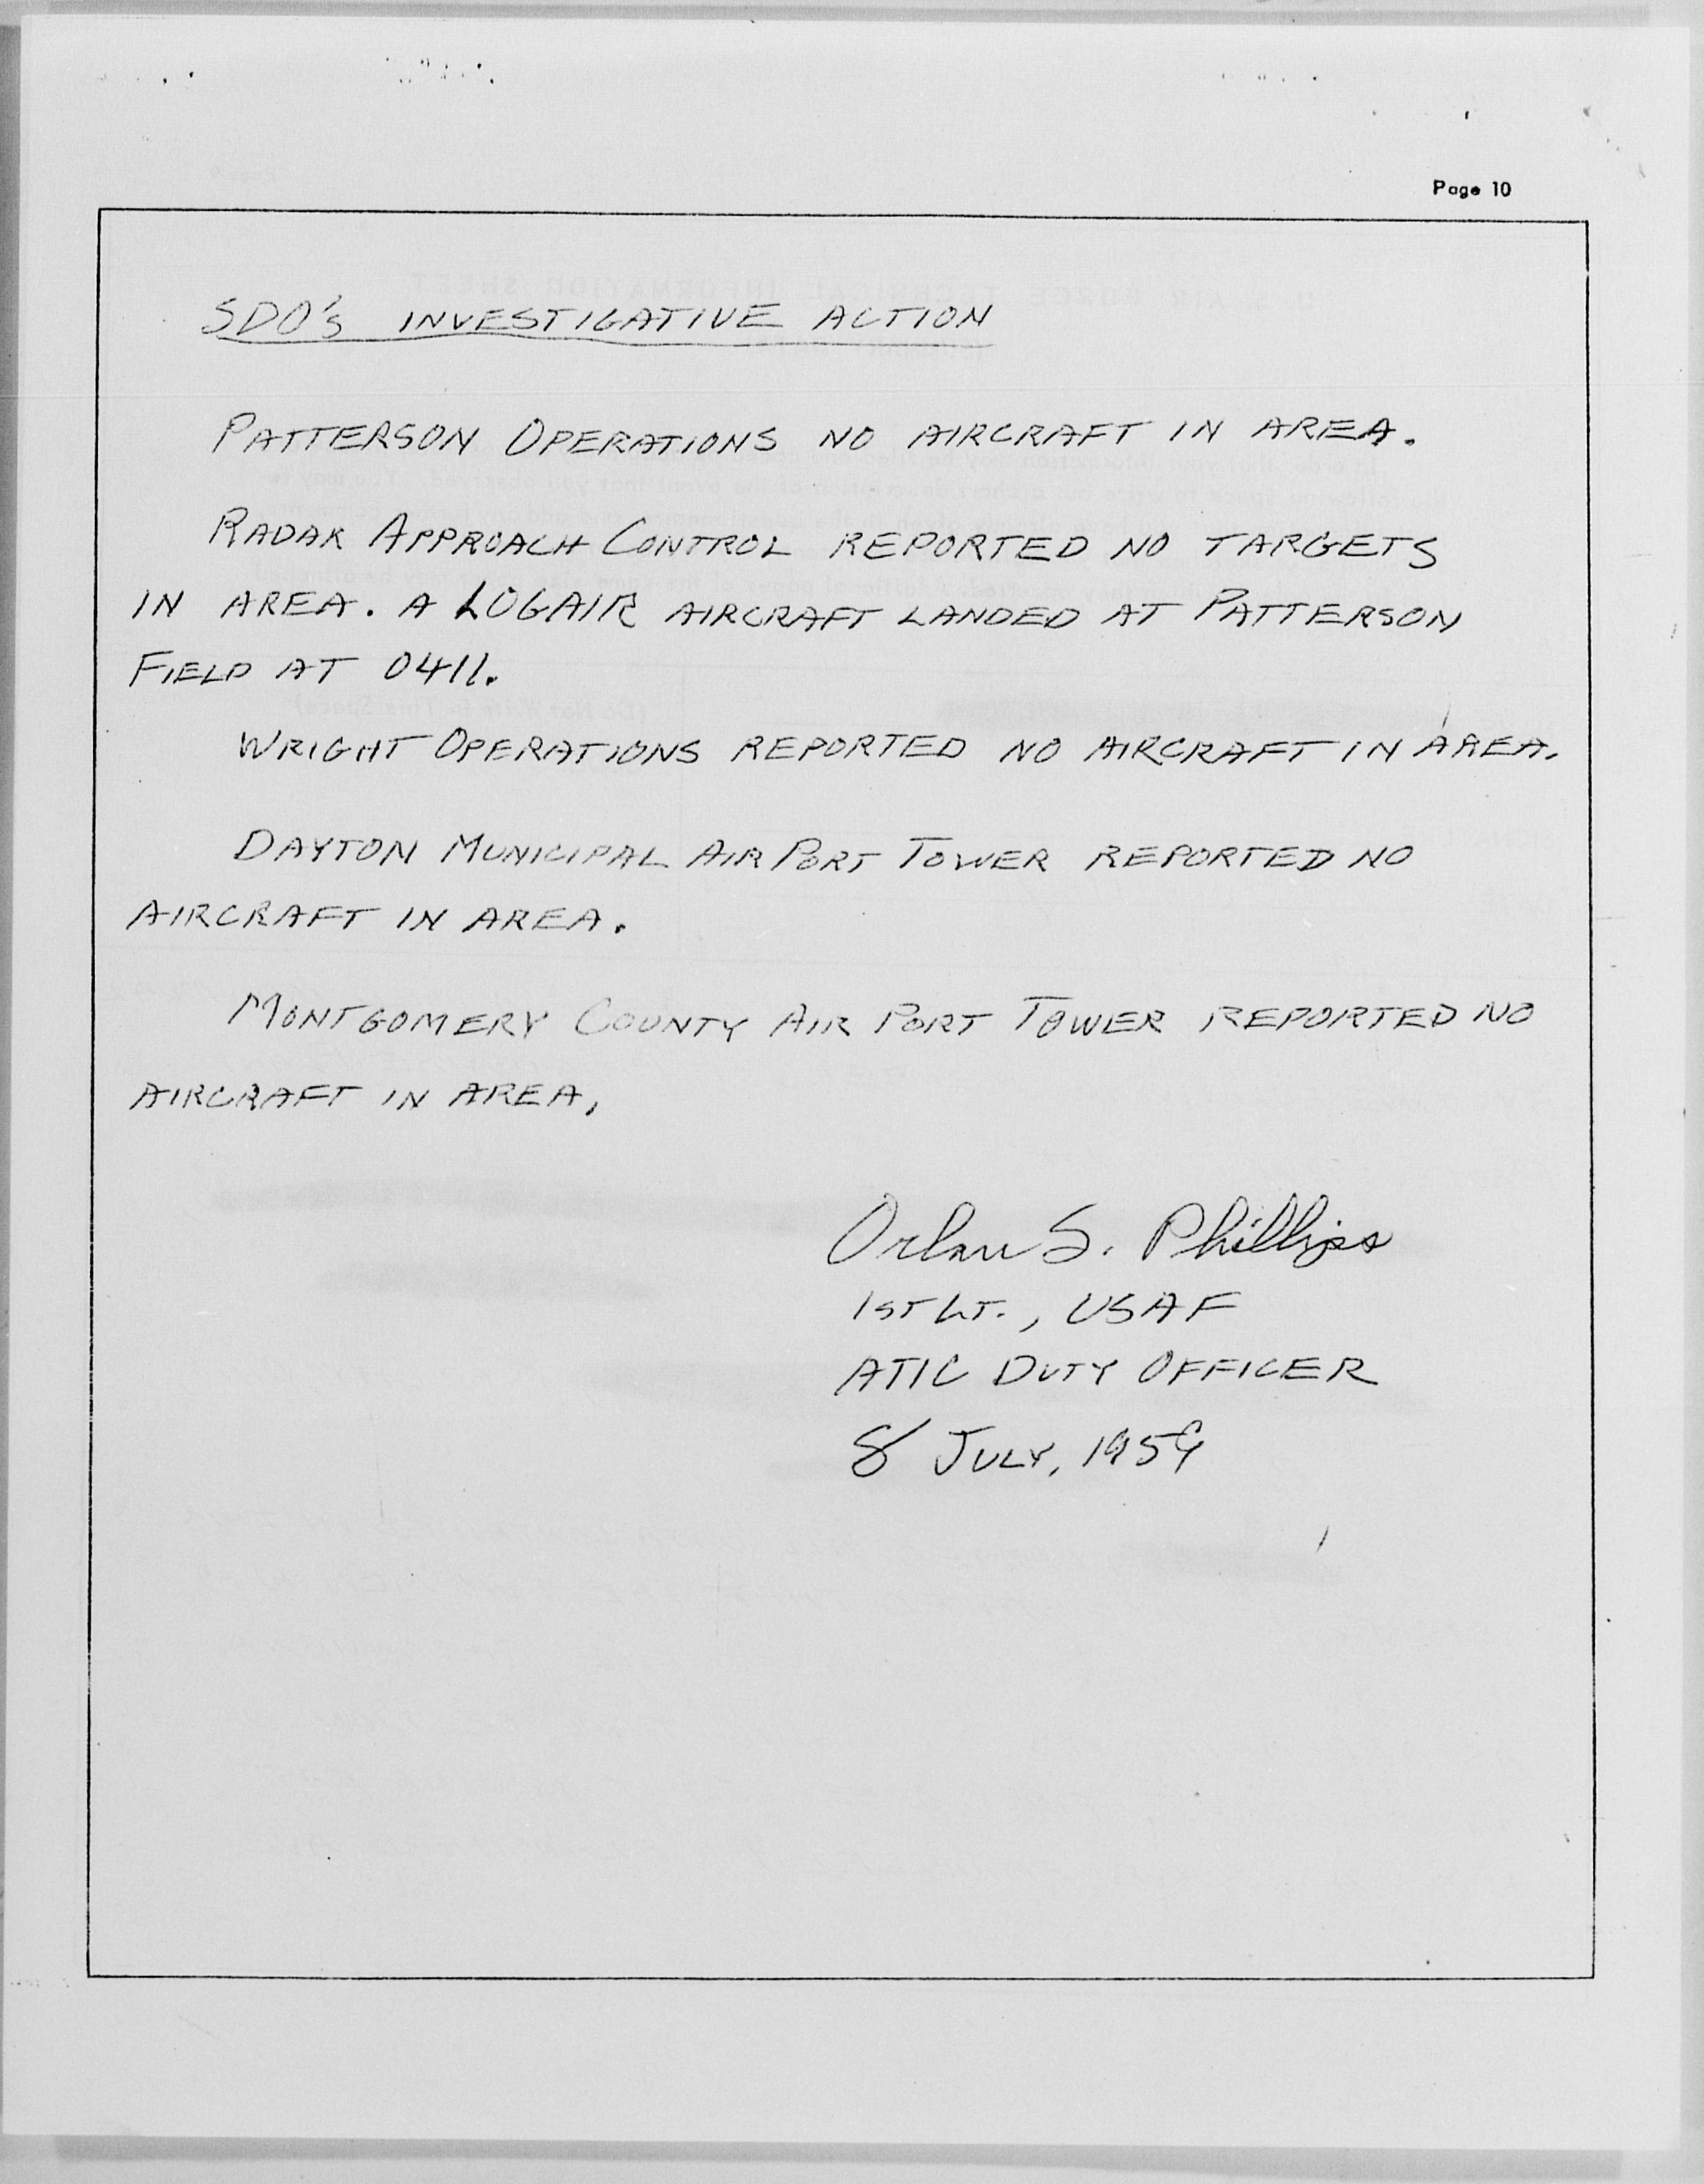 Page 10
SDO's INVESTIGATIVE ACTION
PATTERSON OPERATIONS NO AIRCRAFT IN AREA.
RADAR APPROACH CONTROL REPORTED NO TARGETS
IN AREA. A LOGAIR AIRCRAFT LANDED AT PATTERSON
FIELD AT 0411.
WRIGHT OPERATIONS REPORTED NO AIRCRAFT IN AREA.
DAYTON MUNICIPAL AIR PORT TOWER REPORTED NO
AIRCRAFT IN AREA.
MONTGOMERY COUNTY AIR PORT TOWER REPORTED NO
AIRCRAFT IN AREA,
Orlan S. Phillips
1ST LT., USAF
ATIC DUTY OFFICER
8 JULY, 1959